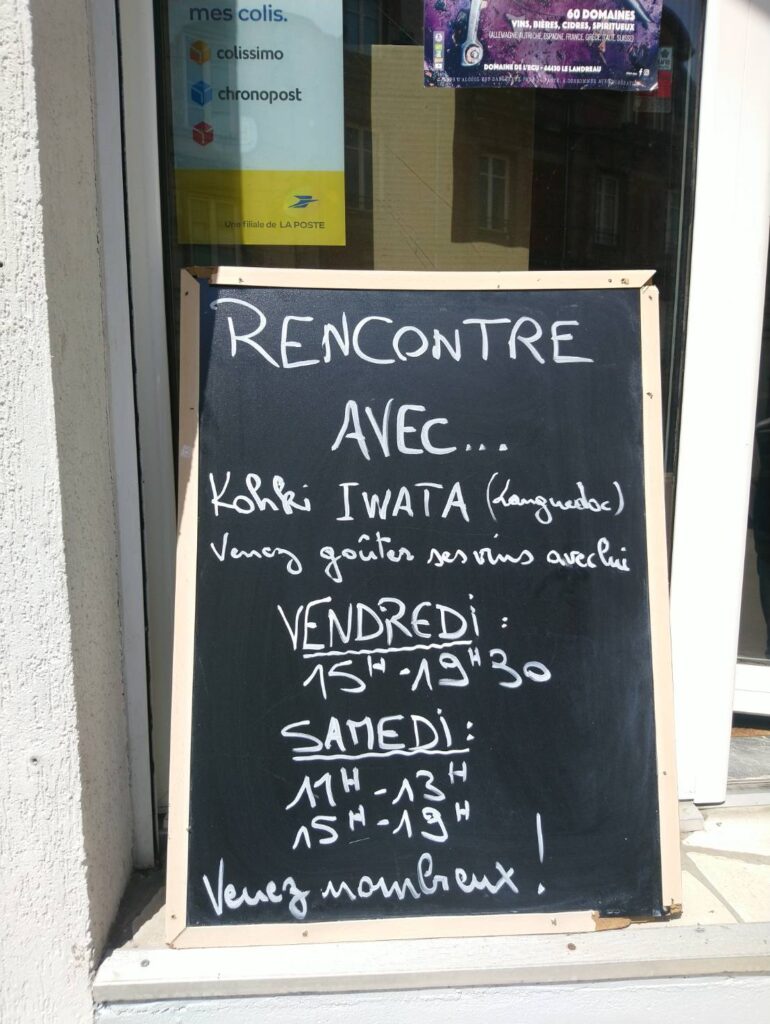 mes colis.
colissimo
chronopost
Une filiale de LA POSTE
60 DOMAINES
VINS, BIÈRES, CIDRES, SPIRITUEUX
(ALLEMAGNE, AUTRICHE, ESPAGNE, FRANCE, GRÈCE, ITALIE, SUISSE)
DOMAINE DE L'ECU - 44430 LE LANDREAU
RENCONTRE
AVEC...
Kohki IWATA (Languedoc)
Venez goûter ses vins avec lui
VENDREDI :
15H - 19H30
SAMEDI :
11H - 13H
15H - 19H
Venez nombreux !